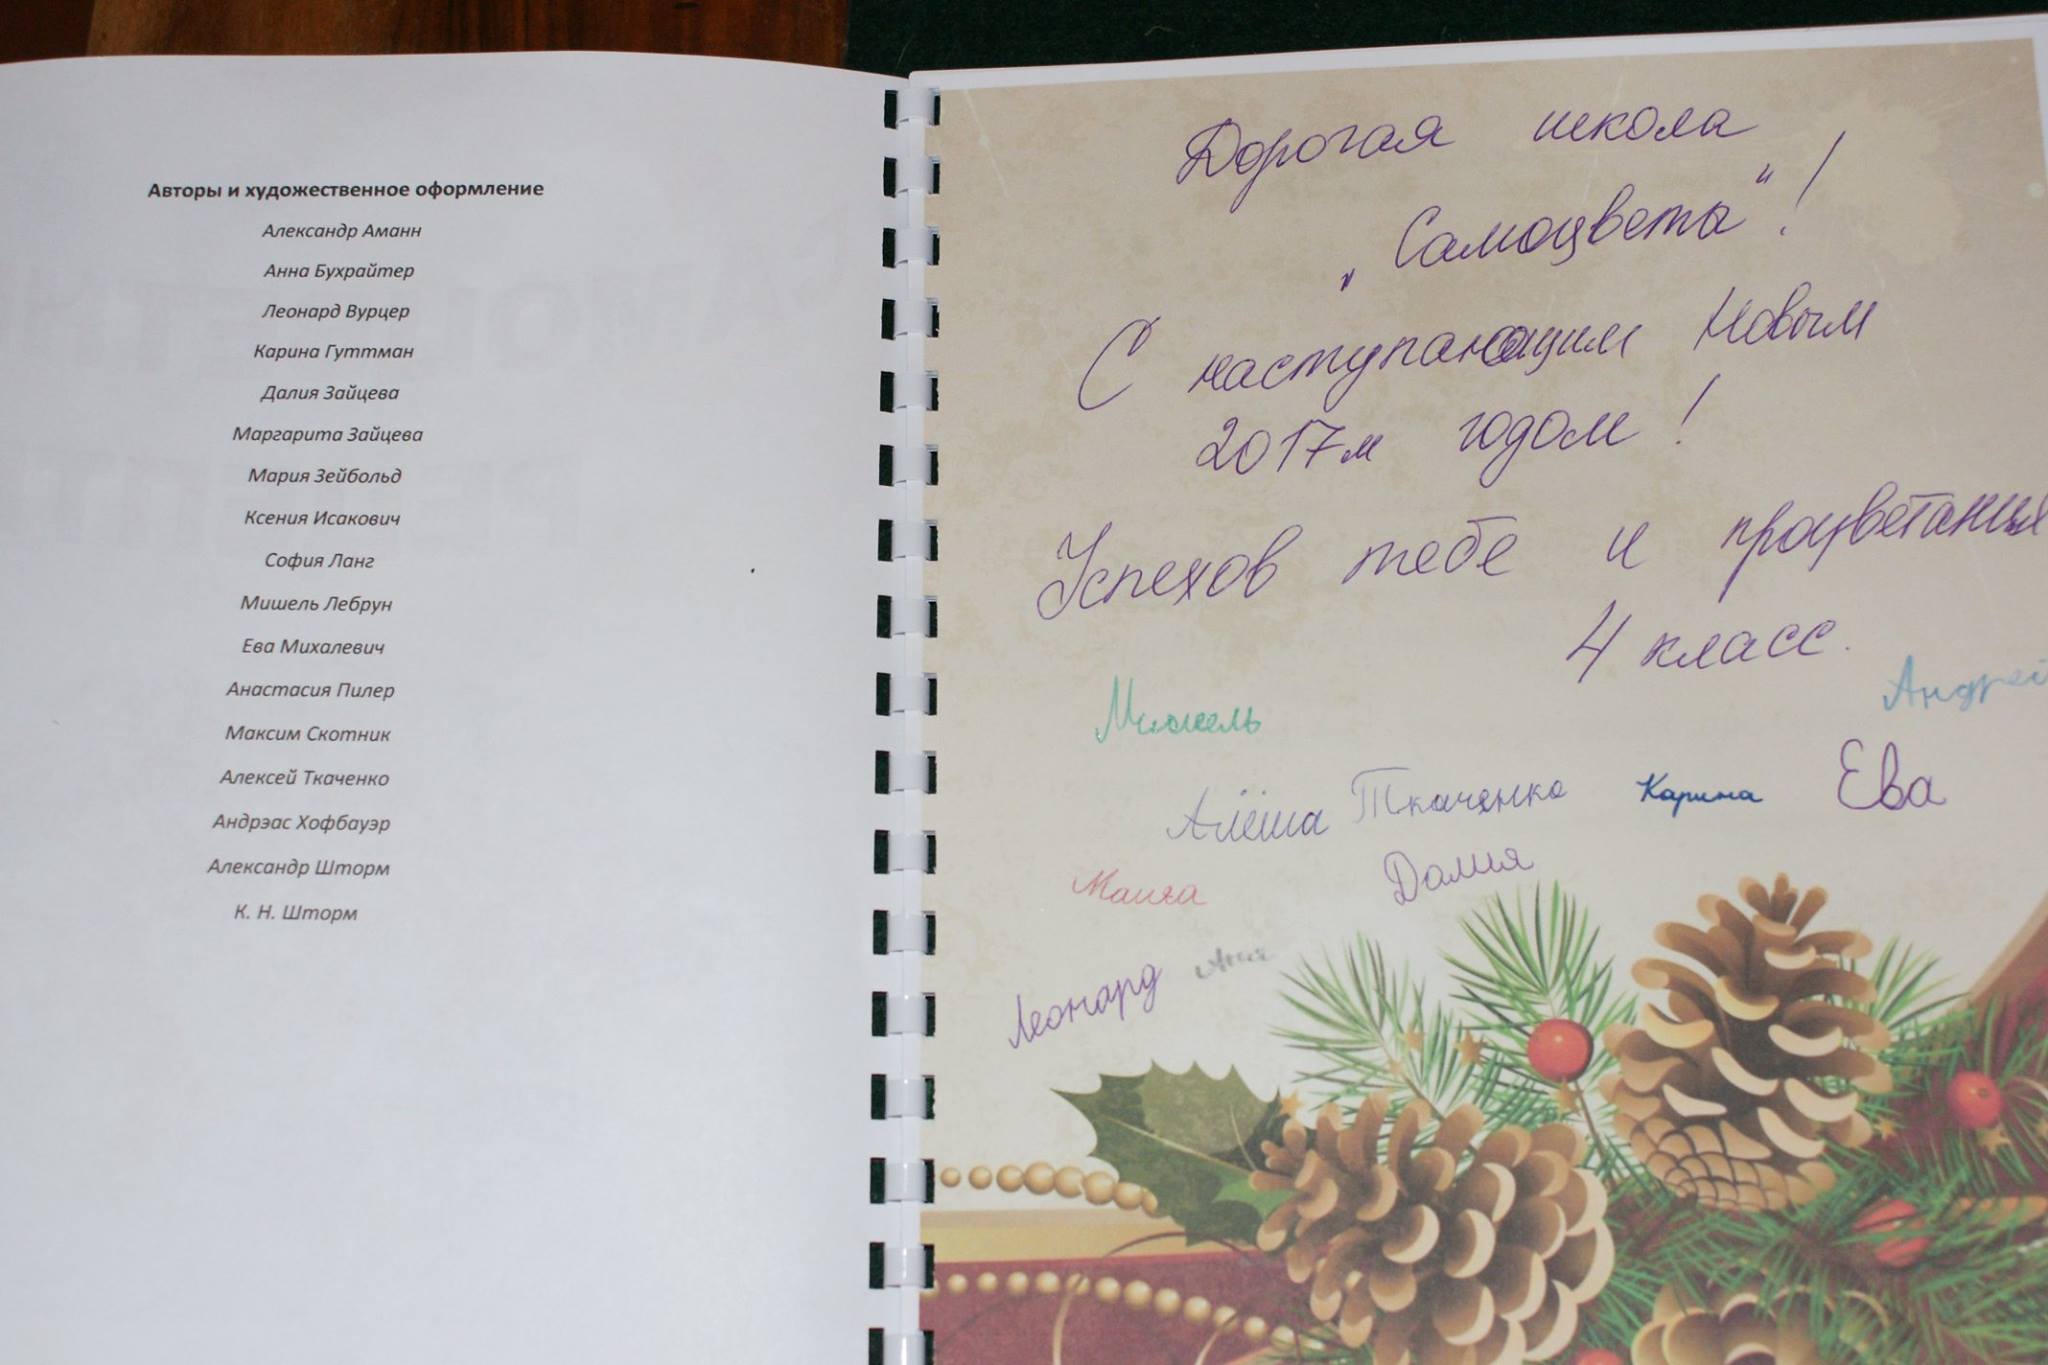 Авторы и художественное оформление
Александр Аманн
Анна Бухрайтер
Леонард Вурцер
Карина Гуттман
Далия Зайцева
Маргарита Зайцева
Мария Зейбольд
Ксения Исакович
София Ланг
Мишель Лебрун
Ева Михалевич
Анастасия Пилер
Максим Скотник
Алексей Ткаченко
Андрэас Хофбауэр
Александр Шторм
К. Н. Шторм
Дорогая школа
„Самоцветы“!
С наступающим Новым
2017м годом!
Успехов тебе и процветания
4 класс.
Андрей
Мишель
Алёша Ткаченко Карина Ева
Маша Далия
Леонард Аня